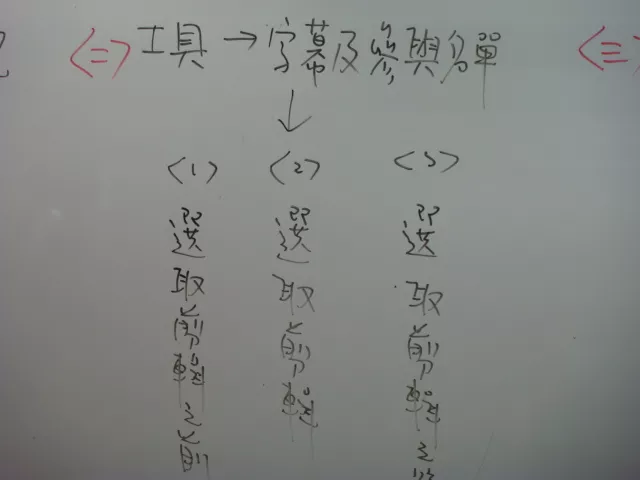 <二>工具→字幕及參與名單
<三>
<1>
選取剪輯之前
<2>
選取剪輯
<3>
選取剪輯之